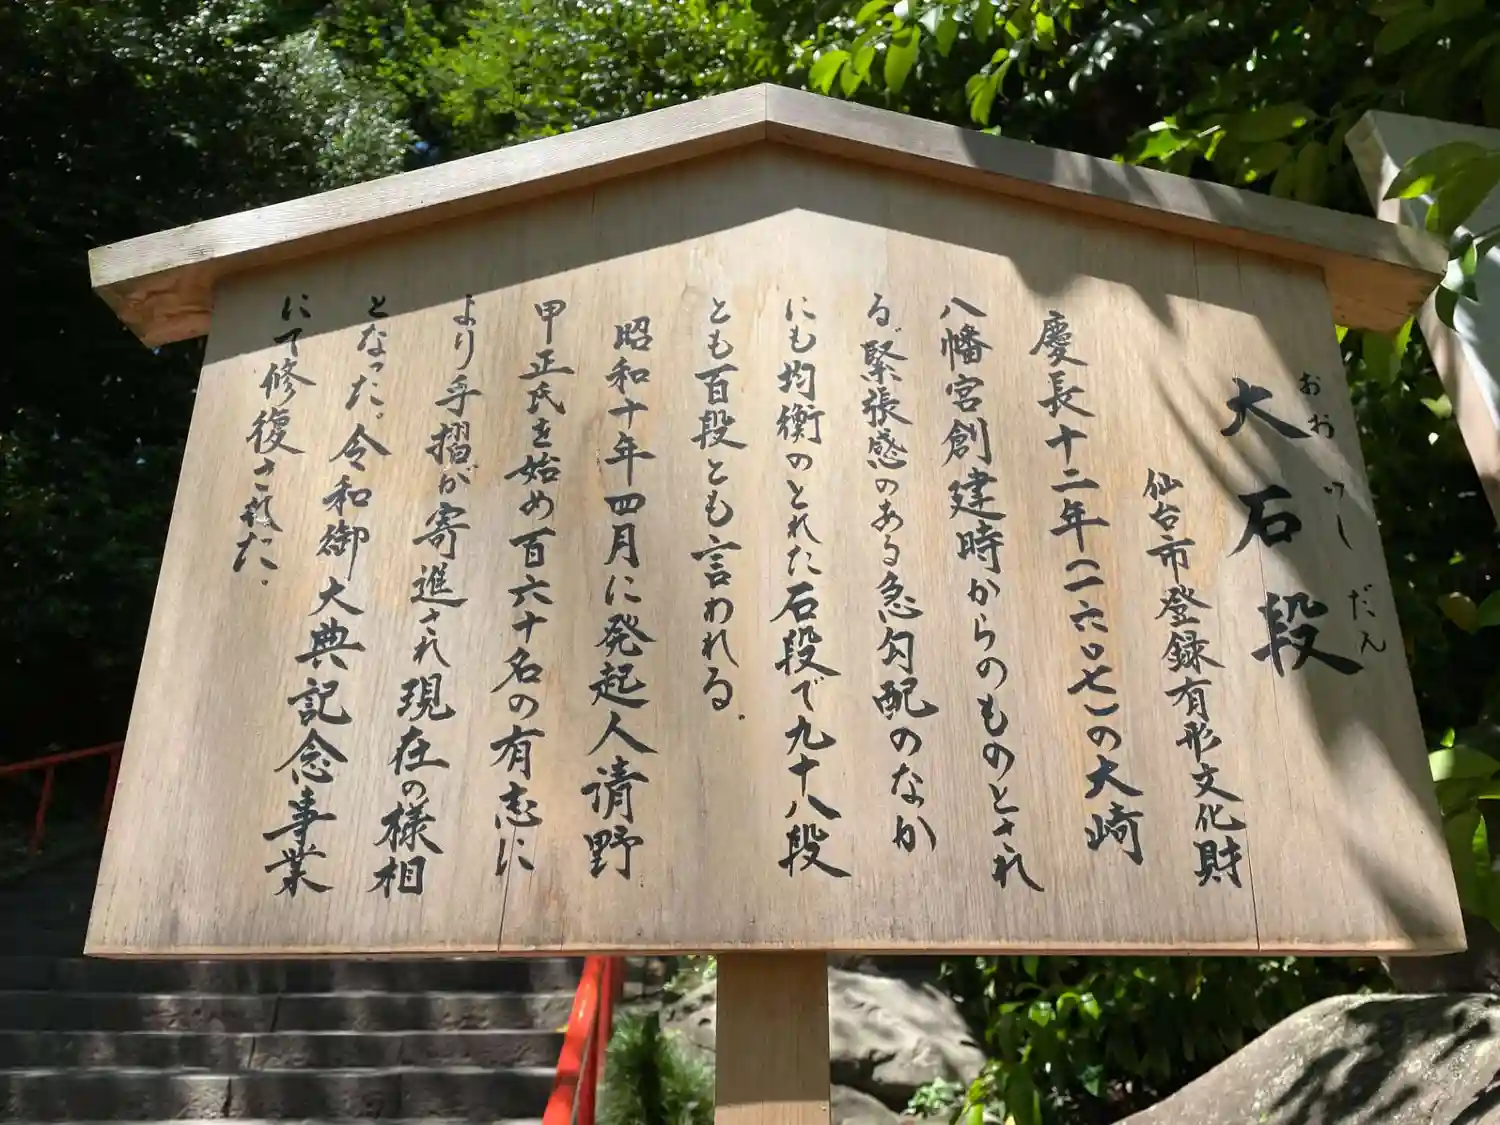 大石段
おお いし だん
仙台市登録有形文化財
慶長十二年(一六〇七)の大崎
八幡宮創建時からのものとされ
る゛緊張感のある急勾配のなか
にも均衡のとれた石段で九十八段
とも百段とも言われる。
昭和十年四月に発起人请野
甲正氏を始め百六十名の有志に
より手摺が寄進され現在の様相
となった。令和御大典記念事業
にて修復された。